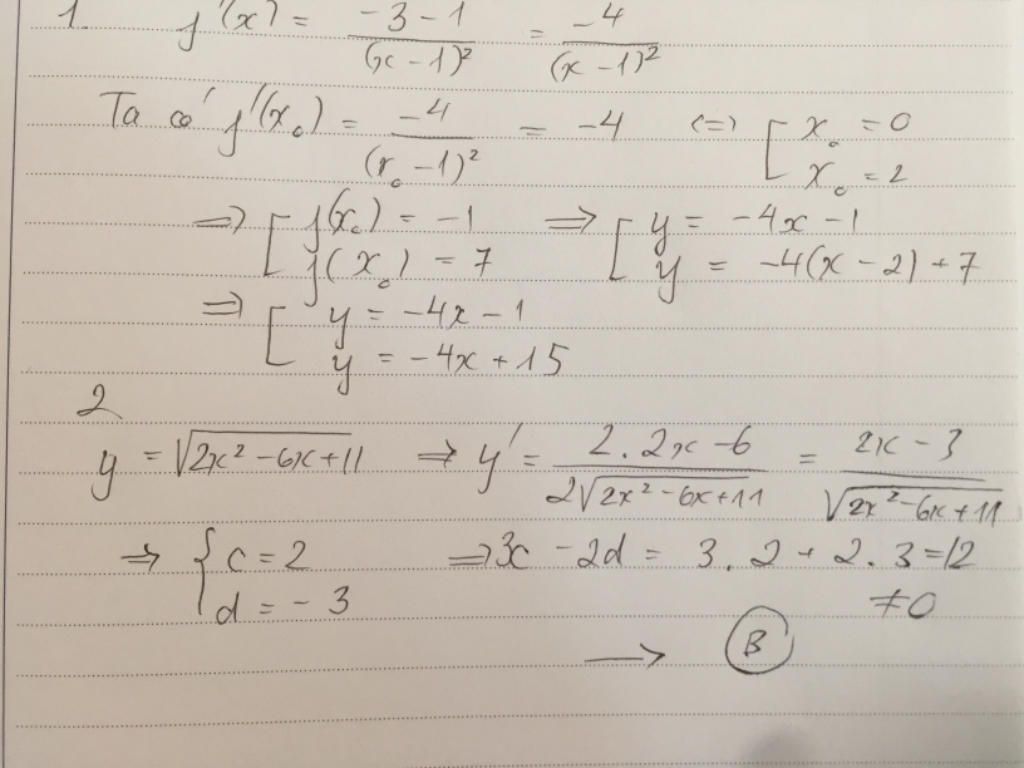 1. f'(x) = \frac{-3-1}{(x-1)^2} = \frac{-4}{(x-1)^2}
Ta có f'(x_0) = \frac{-4}{(x_0-1)^2} = -4 <=> [ x_0 = 0
x_0 = 2
=> [ f(x_0) = -1 => [ y = -4x - 1
f(x_0) = 7 y = -4(x-2)+7
=> [ y = -4x - 1
y = -4x + 15
2
y = \sqrt{2x^2-6x+11} => y' = \frac{2.2x-6}{2\sqrt{2x^2-6x+11}} = \frac{2x-3}{\sqrt{2x^2-6x+11}}
=> { c = 2 => 3c - 2d = 3.2 + 2.3 = 12
d = -3 ≠ 0
→ B